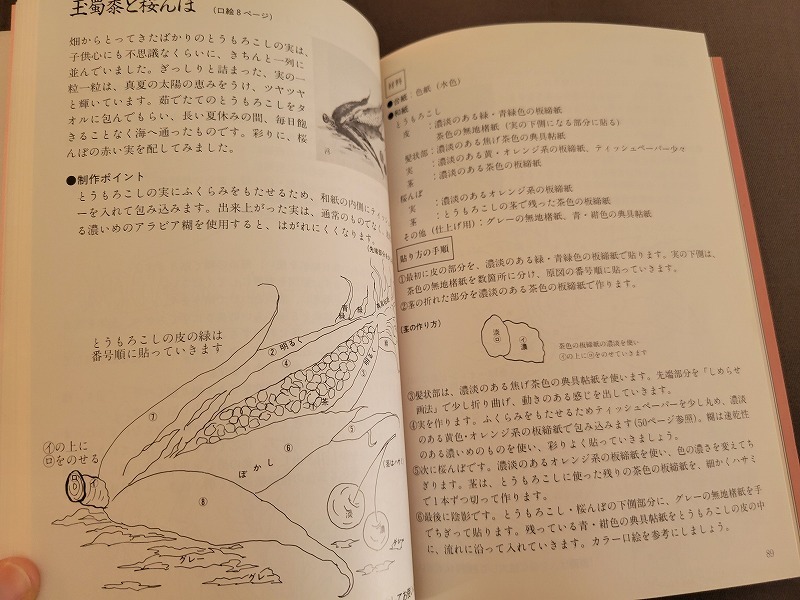 玉蜀黍と桜んぼ （口絵8ページ）
畑からとってきたばかりのとうもろこしの実は、
子供心にも不思議なくらいに、きちんと一列に
並んでいました。ぎっしりと詰まった、実の一
粒一粒は、真夏の太陽の恵みをうけ、ツヤツヤ
と輝いています。茹でたてのとうもろこしをタ
オルに包んでもらい、長い夏休みの間、毎日飽
きることなく海へ通ったものです。彩りに、桜
んぼの赤い実を配してみました。
●制作ポイント
とうもろこしの実にふくらみをもたせるため、和紙の内側にティッ
ーを入れて包み込みます。出来上がった実は、通常のものでなく、
る濃いめのアラビア糊を使用すると、はがれにくくなります。
とうもろこしの皮の緑は
番号順に貼っていきます
②明るく
④
⑦
茶
⑤
⑥
ぼかし
⑧
㋑の上に
㋺をのせる
グレー
グレー
材料
●台紙：色紙（水色）
●和紙
とうもろこし
皮　：濃淡のある緑・青緑色の板締紙
茶色の無地楮紙（実の下側になる部分に貼る）
髭状部：濃淡のある焦げ茶色の典具帖紙
実　：濃淡のある黄・オレンジ系の板締紙、ティッシュペーパー少々
茎　：濃淡のある茶色の板締紙
桜んぼ
実　：濃淡のあるオレンジ系の板締紙
茎　：とうもろこしの茎で残った茶色の板締紙
その他（仕上げ用）：グレーの無地楮紙、青・紺色の典具帖紙
貼り方の手順
①最初に皮の部分を、濃淡のある緑・青緑色の板締紙で貼ります。実の下側は、
茶色の無地楮紙を数箇所に分け、原図の番号順に貼っていきます。
②茎の折れた部分を濃淡のある茶色の板締紙で作ります。
（茎の作り方）
淡
㋺
㋑
濃
茶色の板締紙の濃淡を使い
㋑の上に㋺をのせていきます
③髭状部は、濃淡のある焦げ茶色の典具帖紙を使います。先端部分を「しめらせ
画法」で少し折り曲げ、動きのある感じを出していきます。
④実を作ります。ふくらみをもたせるためティッシュペーパーを少し丸め、濃淡
のある黄色・オレンジ系の板締紙で包み込みます(50ページ参照)。糊は速乾性
のある濃いめのものを使い、彩りよく貼っていきましょう。
⑤次に桜んぼです。濃淡のあるオレンジ系の板締紙を使い、色の濃さを変えてち
ぎります。茎は、とうもろこしに使った残りの茶色の板締紙を、細かくハサミ
で1本ずつ切って作ります。
⑥最後に陰影です。とうもろこし・桜んぼの下側部分に、グレーの無地楮紙を手
でちぎって貼ります。残っている青・紺色の典具帖紙をとうもろこしの皮の中
に、流れに沿って入れていきます。カラー口絵を参考にしましょう。
89